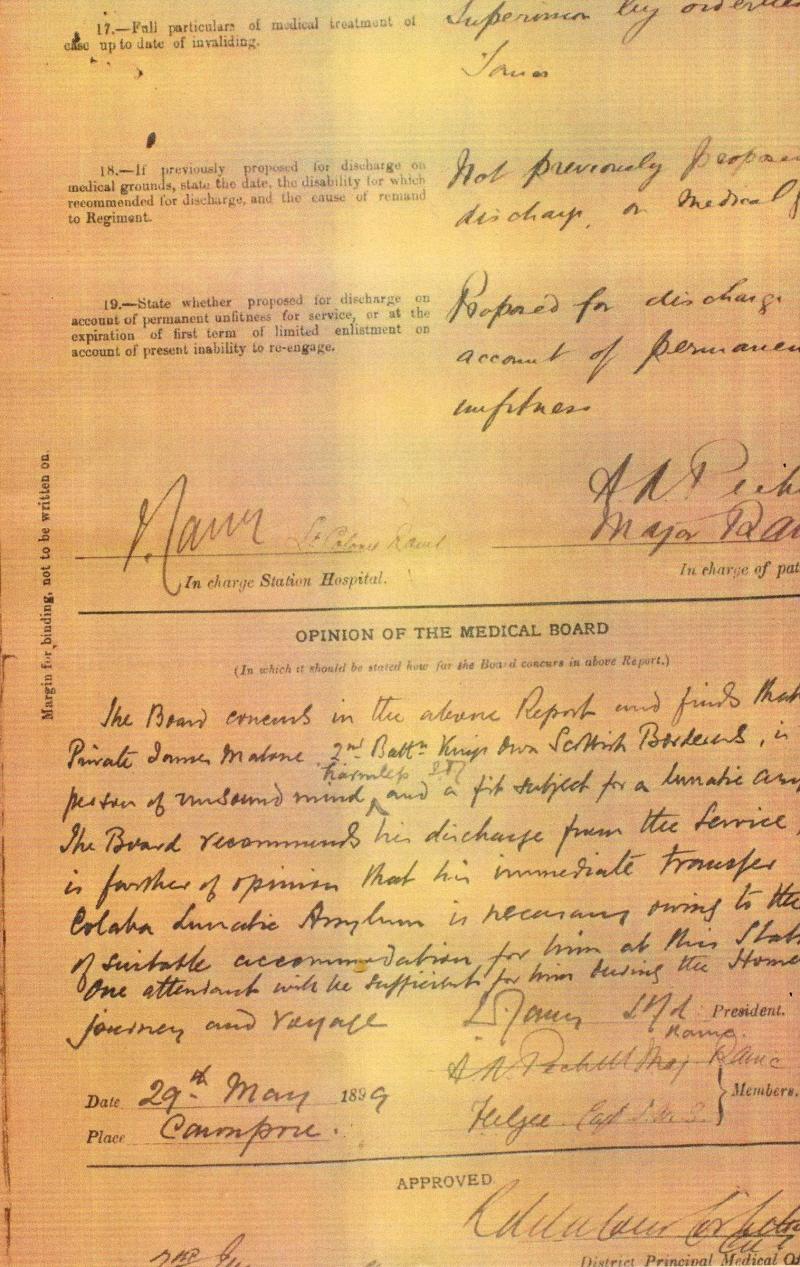 17.—Full particulars of medical treatment of
case up to date of invaliding.
Supervision by
Tonics
18.—If previously proposed for discharge on
medical grounds, state the date, the disability for which
recommended for discharge, and the cause of remand
to Regiment.
Not previously
discharge, on medical
19.—State whether proposed for discharge on
account of permanent unfitness for service, or at the
expiration of first term of limited enlistment on
account of present inability to re-engage.
Proposed for discharge
account of
unfitness
Lt Colonel Ramc
In charge Station Hospital.
Major
In charge of
Margin for binding, not to be written on.
OPINION OF THE MEDICAL BOARD
(In which it should be stated how far the Board concurs in above Report.)
The Board concurs in the above Report and finds that
Private James Malone, 2nd Battn Kings Own Scottish Borderers, is
harmless
person of unsound mind, and a fit subject for a lunatic
The Board recommends his discharge from the Service,
is further of opinion that his immediate transfer
Colaba Lunatic Asylum is necessary owing to the
of suitable accommodation for him at this
One attendant will be sufficient for him during the Home
journey and voyage
President.
Ramc.
Ramc
Members.
Date 29th May 1899
Place Cawnpore.
APPROVED.
District Principal Medical